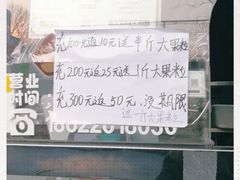 充100元返10元送半斤大果粒
充200元返25元送1斤大果粒
充300元返50元,没期限
送一斤大果粒
营业
时间